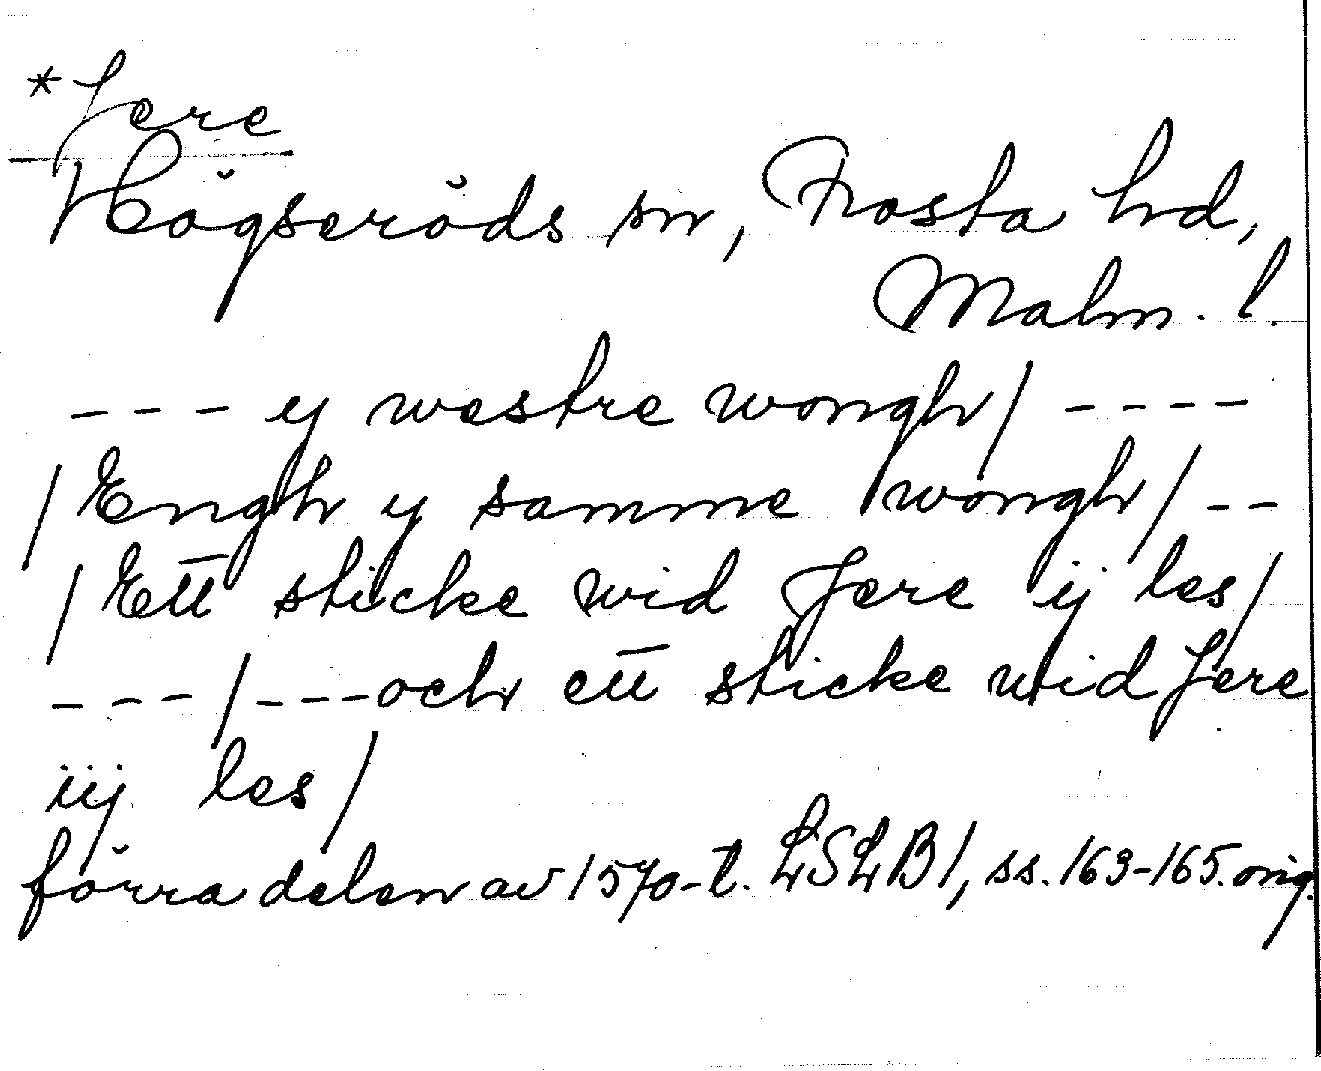 *Jere
Högseröds sn, Frosta hd,
Malm. l.
--- y westre wongh/ ----
/Engh y samme wongh/ --
/Ett sticke wid Jere ij les/
---/---och ett sticke wid Jere
iij les/
förra delen av 1570-t. LSLB1, ss. 163-165. orig.